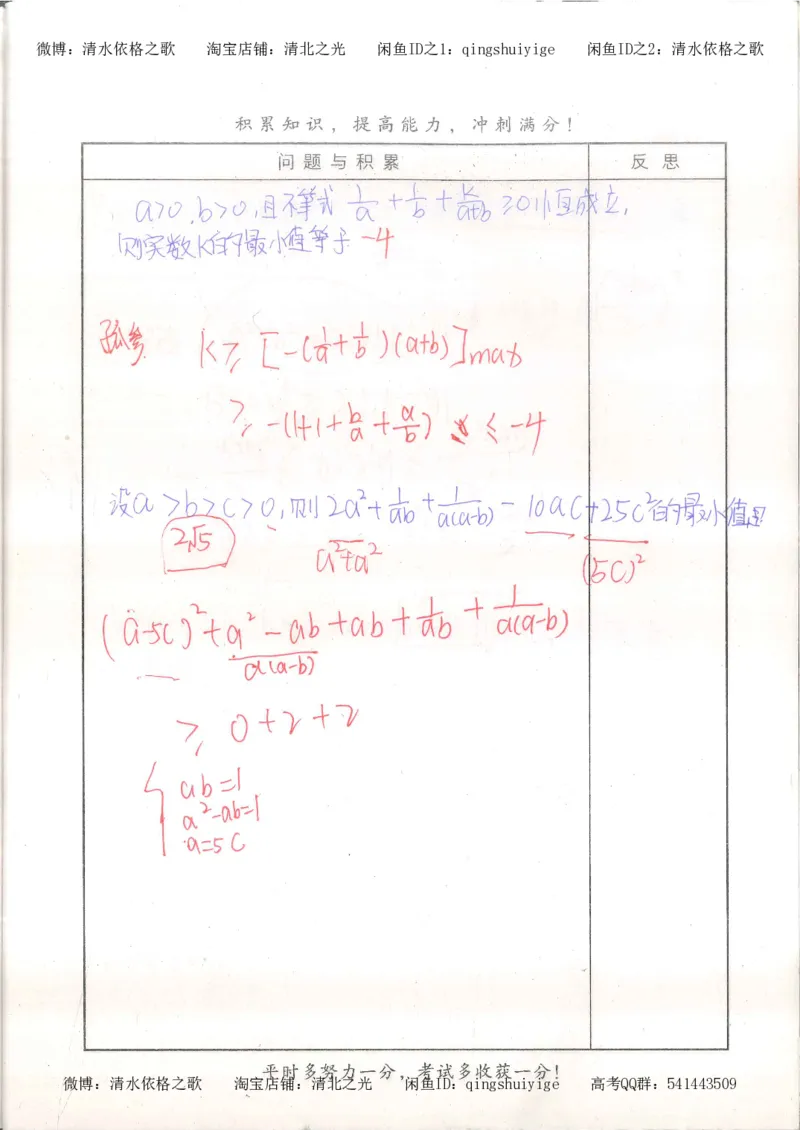 微博：清水依格之歌 淘宝店铺：清北之光 闲鱼ID之1：qingshuiyige 闲鱼ID之2：清水依格之歌
积累知识，提高能力，冲刺满分！
问题与积累 反思
a>0,b>0,且不等式 1/a + 1/b + k/(a+b) ≥0恒成立,
则实数k的最小值等于 -4
孤参 k≥ [-(1/a + 1/b)(a+b)]max
≥ -(1+1+b/a+a/b) ≤ -4
设a>b>c>0,则2a²+1/ab+1/a(a-b)-10ac+25c²的最小值是
2√5 a²+a² (5c)²
(a-5c)²+a²-ab+ab+1/ab+1/a(a-b)
a(a-b)
≥ 0+2+2
{ab=1
a²-ab=1
a=5c
平时多努力一分，考试多收获一分！
微博：清水依格之歌 淘宝店铺：清北之光 闲鱼ID：qingshuiyige 高考QQ群：541443509